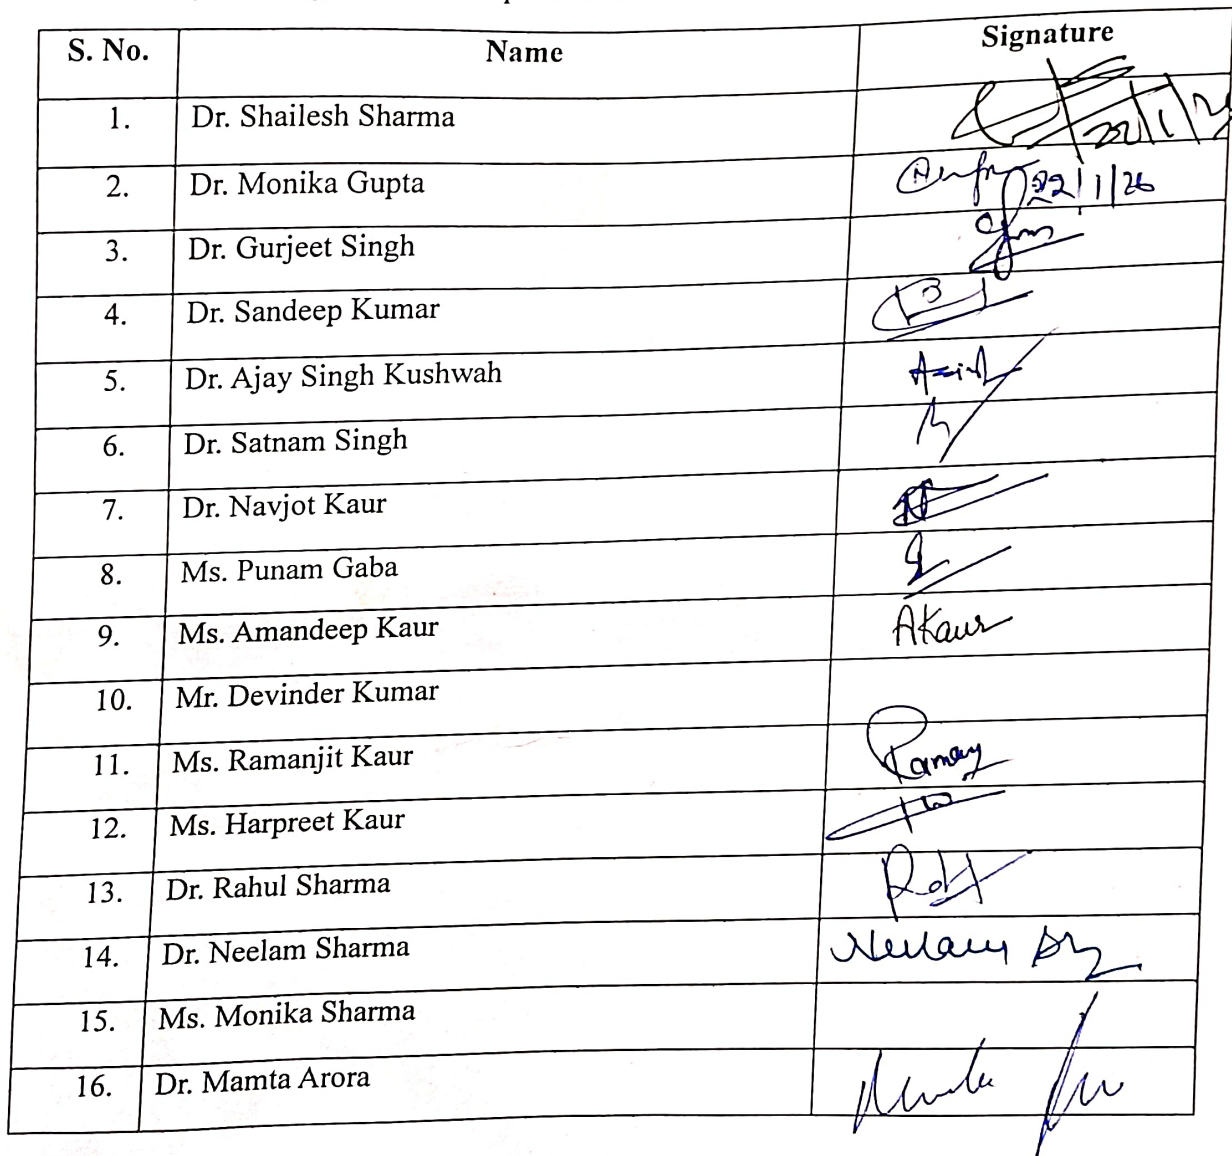 S. No. Name Signature
1. Dr. Shailesh Sharma 22/1/26
2. Dr. Monika Gupta 22/1/26
3. Dr. Gurjeet Singh
4. Dr. Sandeep Kumar
5. Dr. Ajay Singh Kushwah
6. Dr. Satnam Singh
7. Dr. Navjot Kaur
8. Ms. Punam Gaba
9. Ms. Amandeep Kaur AKaur
10. Mr. Devinder Kumar
11. Ms. Ramanjit Kaur
12. Ms. Harpreet Kaur
13. Dr. Rahul Sharma
14. Dr. Neelam Sharma Neelam
15. Ms. Monika Sharma
16. Dr. Mamta Arora